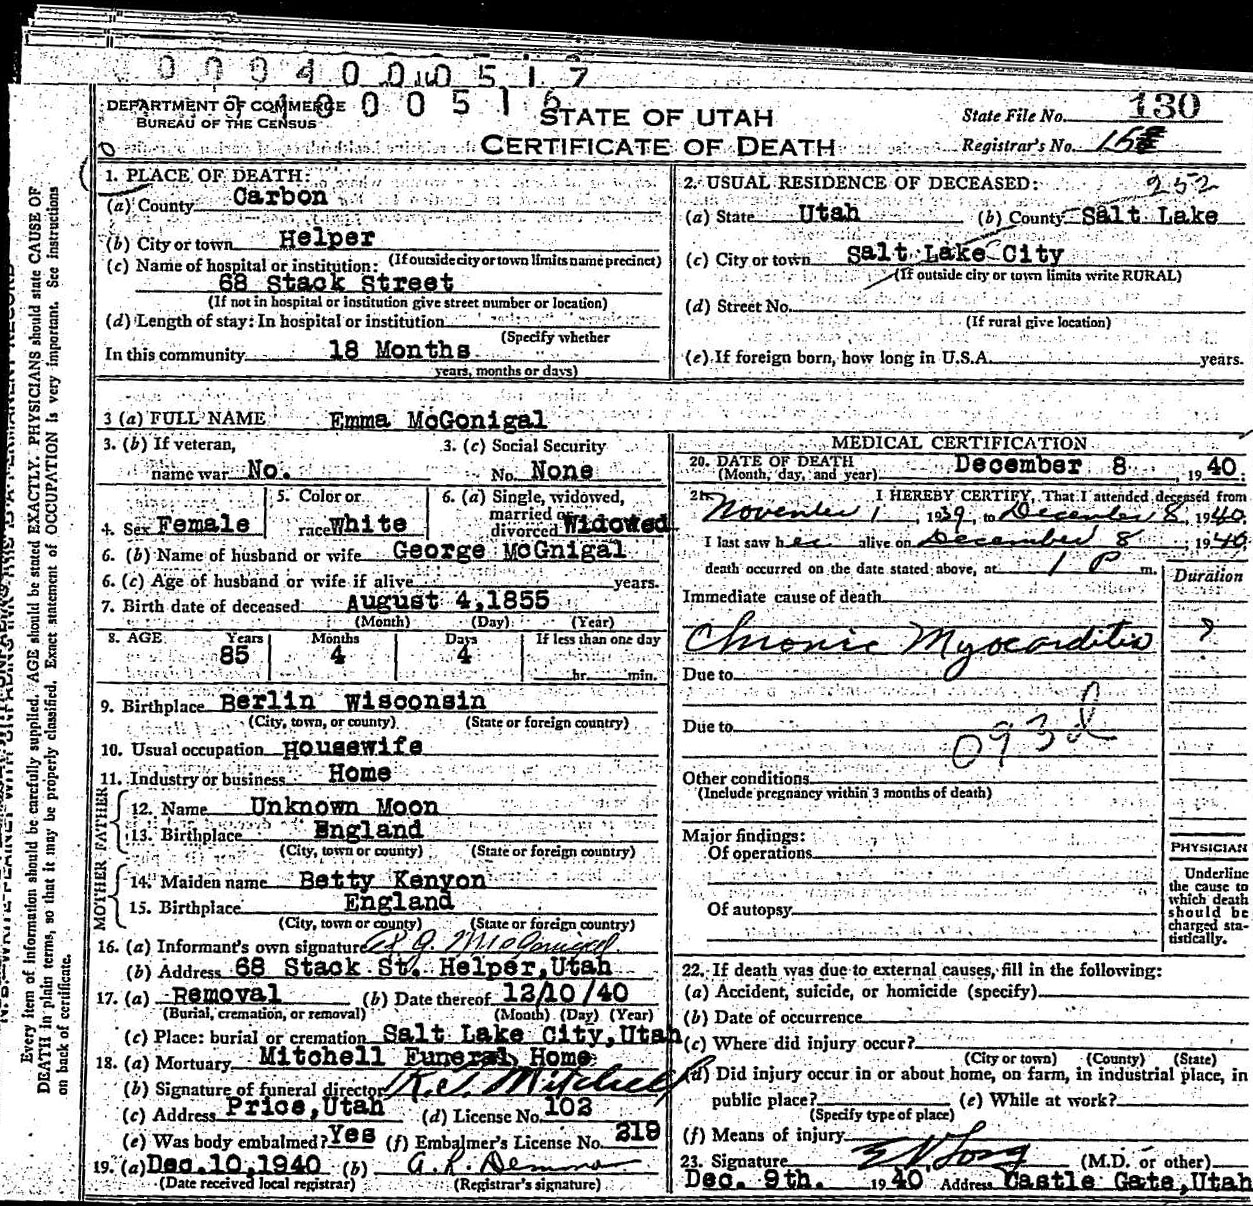 0 0 0 4 0 0 0 0 5 1 7
0 4 0 0 0 5 1 6
DEPARTMENT OF COMMERCE
BUREAU OF THE CENSUS
STATE OF UTAH
CERTIFICATE OF DEATH
State File No. 130
Registrar's No. 15
1. PLACE OF DEATH:
(a) County Carbon
(b) City or town Helper
(If outside city or town limits name precinct)
(c) Name of hospital or institution:
68 Stack Street
(If not in hospital or institution give street number or location)
(d) Length of stay: In hospital or institution
(Specify whether
In this community 18 Months
years, months or days)
2. USUAL RESIDENCE OF DECEASED: 252
(a) State Utah (b) County Salt Lake
(c) City or town Salt Lake City
(If outside city or town limits write RURAL)
(d) Street No.
(If rural give location)
(e) If foreign born, how long in U.S.A. years.
3 (a) FULL NAME Emma McGonigal
3. (b) If veteran, 3. (c) Social Security
name war No. No. None
4. Sex Female 5. Color or race White 6. (a) Single, widowed, married or divorced Widowed
6. (b) Name of husband or wife George McGnigal
6. (c) Age of husband or wife if alive years.
7. Birth date of deceased August 4,1855
(Month) (Day) (Year)
8. AGE Years Months Days If less than one day
85 4 4 hr. min.
9. Birthplace Berlin Wisconsin
(City, town, or county) (State or foreign country)
10. Usual occupation Housewife
11. Industry or business Home
FATHER
12. Name Unknown Moon
13. Birthplace England
(City, town or county) (State or foreign country)
MOTHER
14. Maiden name Betty Kenyon
15. Birthplace England
(City, town or county) (State or foreign country)
16. (a) Informant's own signature McGonigal
(b) Address 68 Stack St. Helper,Utah
17. (a) Removal (b) Date thereof 12/10/40
(Burial, cremation, or removal) (Month) (Day) (Year)
(c) Place: burial or cremation Salt Lake City,Utah
18. (a) Mortuary Mitchell Funeral Home
(b) Signature of funeral director Mitchell
(c) Address Price,Utah (d) License No. 102
(e) Was body embalmed? Yes (f) Embalmer's License No. 219
19. (a) Dec.10,1940 (b)
(Date received local registrar) (Registrar's signature)
MEDICAL CERTIFICATION
20. DATE OF DEATH December 8 , 1940.
(Month, day, and year)
21. I HEREBY CERTIFY, That I attended deceased from
November 1, 1939, to December 8, 1940
I last saw her alive on December 8, 1940
death occurred on the date stated above, at 1 P m.
Duration
Immediate cause of death
Chronic Myocarditis ?
Due to
Due to 093d
Other conditions
(Include pregnancy within 3 months of death)
Major findings:
Of operations
Of autopsy
PHYSICIAN
Underline
the cause to
which death
should be
charged sta-
tistically.
22. If death was due to external causes, fill in the following:
(a) Accident, suicide, or homicide (specify)
(b) Date of occurrence
(c) Where did injury occur?
(City or town) (County) (State)
(d) Did injury occur in or about home, on farm, in industrial place, in
public place? (e) While at work?
(Specify type of place)
(f) Means of injury
23. Signature (M.D. or other)
Dec. 9th. 1940 Address Castle Gate,Utah
Every item of information should be carefully supplied. AGE should be stated EXACTLY. PHYSICIANS should state CAUSE OF
DEATH in plain terms, so that it may be properly classified. Exact statement of OCCUPATION is very important. See instructions
on back of certificate.